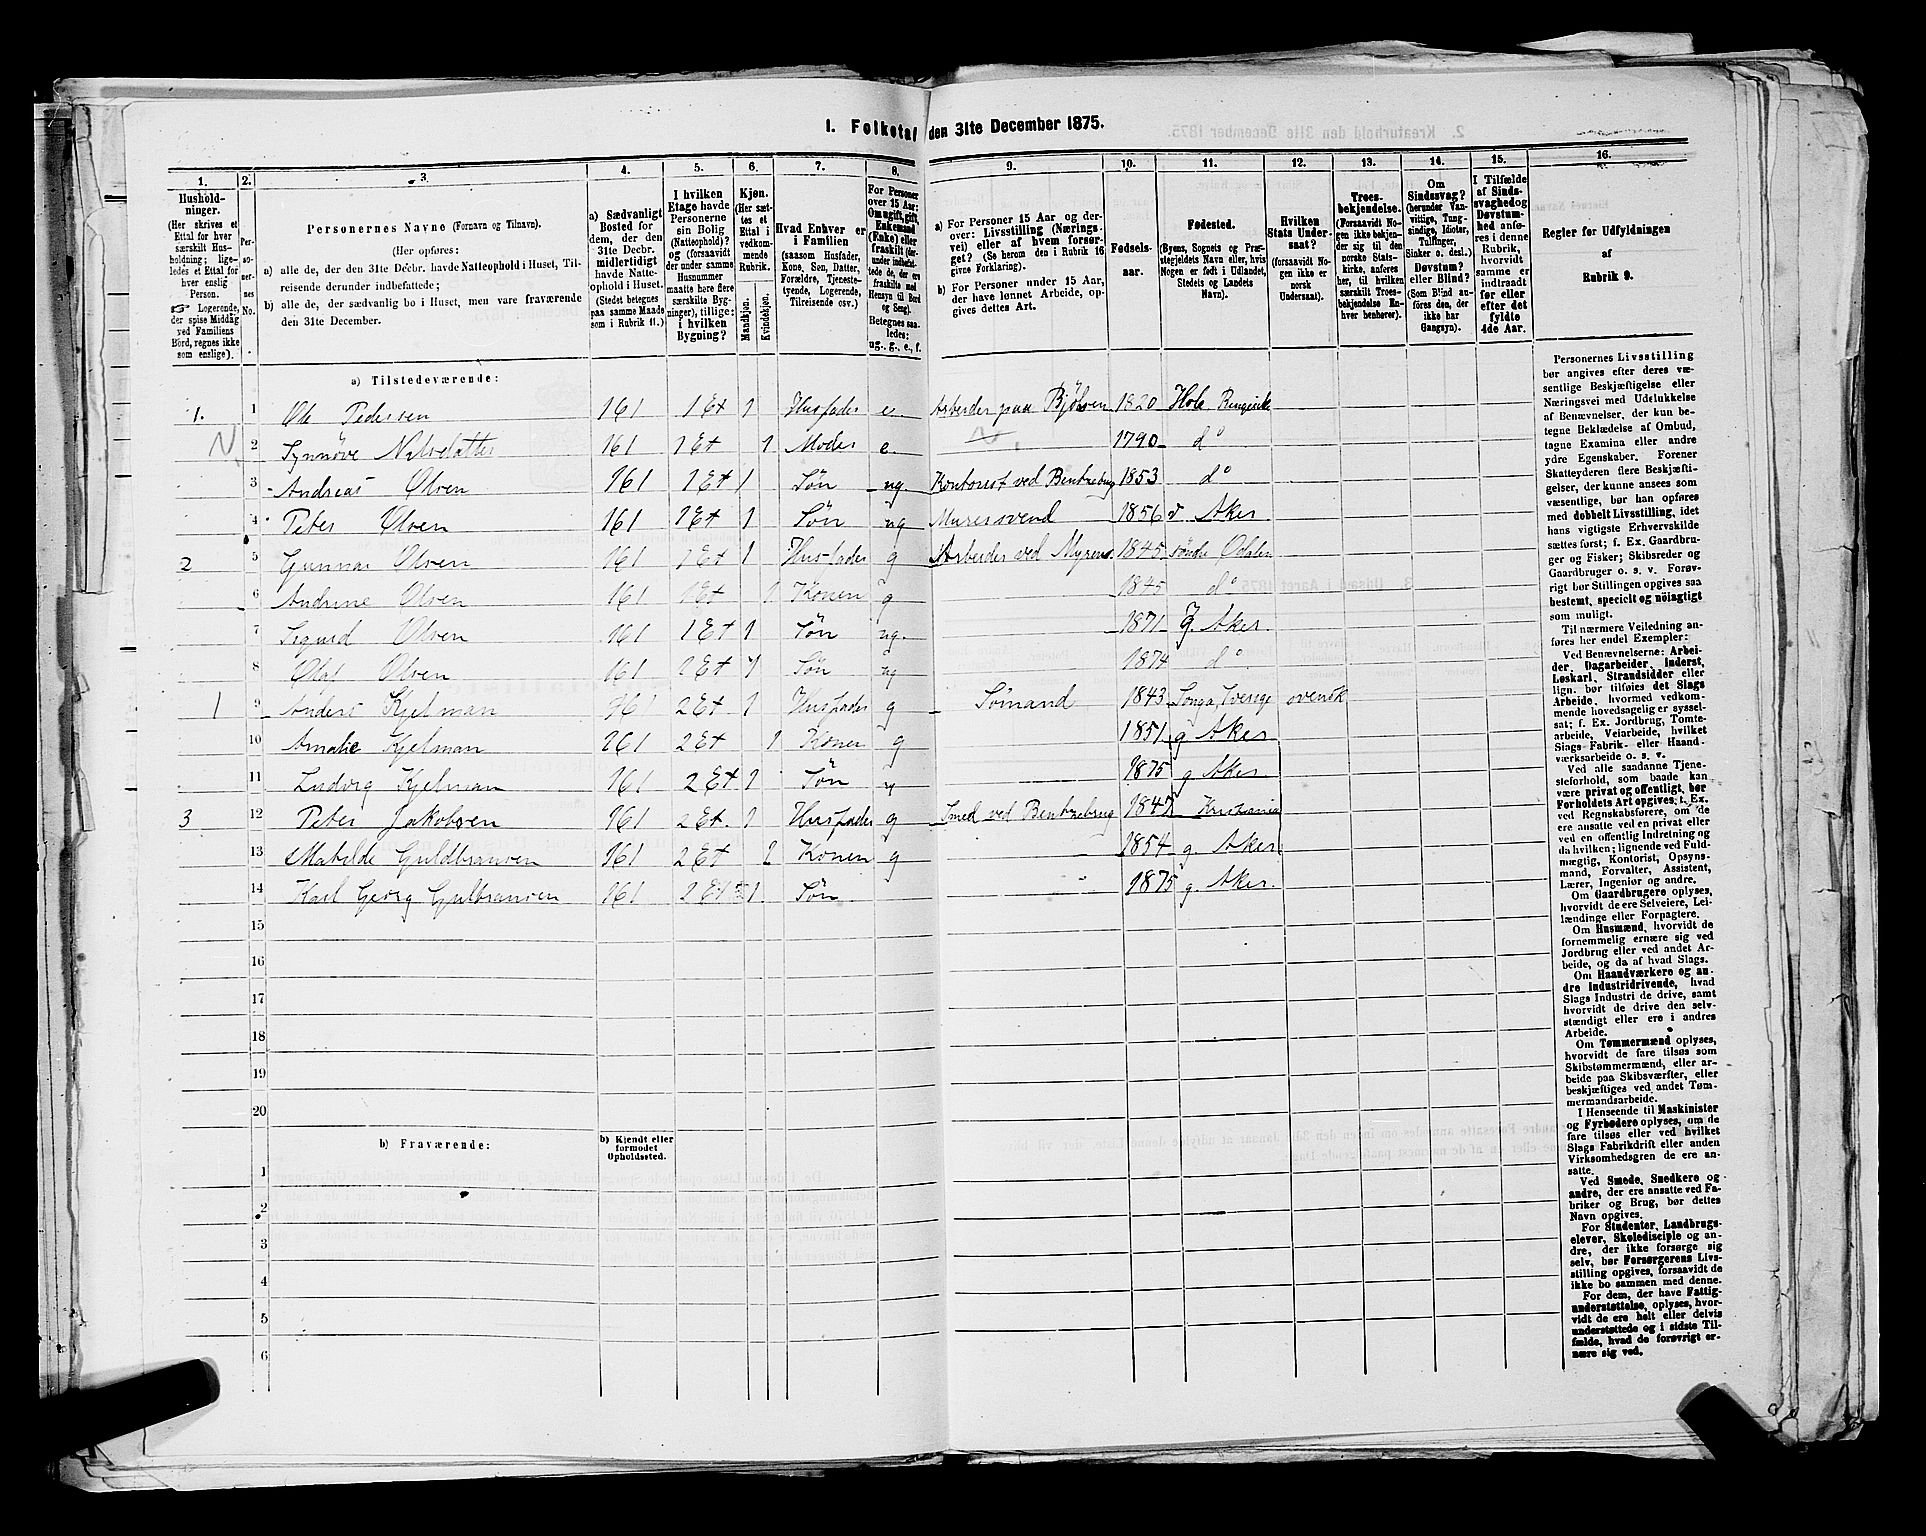 1. Folketal den 31te December 1875.
1. 2. 3. 4. 5. 6. 7. 8. 9. 10. 11. 12. 13. 14. 15. 16.
Husholdninger.
(Her skrives et
Ettal for hver
særskilt Husholdning; ligeledes
et Ettal for
hver enslig
Person.
Logerende,
der spise Middag
ved Familiens
Bord, regnes ikke
som enslige).
Personernes No.
Personernes Navne (Fornavn og Tilnavn).
(Her opføres:
a) alle de, der den 31te Decbr. havde Natteophold i Huset, Tilreisende
derunder indbefattede;
b) alle de, der sædvanlig bo i Huset, men vare fraværende
den 31te December.
a) Sædvanligt
Bosted for
dem, der den
31te Decbr.
midlertidigt
havde Natteophold
i Huset.
(Stedet betegnes
paa samme Maade
som i Rubrik 11.)
I hvilken
Etage havde
Personerne
sin Bolig
(Natteophold)?
og (forsaavidt
der under samme
Husnummer
maatte høre flere
særskilte Bygninger),
tillige:
i hvilken
Bygning?
Kjøn.
(Her sættes
et
Ettal i
vedkommende
Rubrik.
Mandkjøn. Kvindekjøn.
Hvad Enhver er
i Familien
(saasom Husfader,
Kone, Søn, Datter,
Forældre, Tjenestetyende,
Logerende,
Tilreisende osv.)
For Personer
over 15 Aar:
Om ugift, gift,
Enkemand
(Enke) eller
fraskilt
Betegnes saaledes:
ug., g., e., f.
a) For Personer 15 Aar og derover:
Livsstilling (Næringsvei)
eller af hvem forsørget?
(Se herom den i Rubrik 16
givne Forklaring).
b) For Personer under 15 Aar,
der have lønnet Arbeide, opgives
dettes Art.
Fødselsaar.
Fødested.
(Byens, Sognets og Præstegjeldets
Navn eller, hvis
Nogen er født i Udlandet,
Stedets og Landets
Navn).
Hvilken
Stats Undersaat?
(forsaavidt Nogen
ikke er
norsk
Undersaat).
Troesbekjendelse.
(Forsaavidt Nogen
ikke bekjender
sig til den
norske Statskirke,
anføres
her, til hvilken
særskilt Troesbekjendelse
Enhver
henhører).
Om
Sindssvag?
(herunder Vanvittige,
Tungsindige,
Idioter,
Tullinger,
Sinker o. desl.)
Døvstum?
eller Blind?
(Som Blind anføres
den, der
ikke har
Gangsyn).
I Tilfælde
af Sindssvaghed
og
Døvstumhed
anføres
i denne
Rubrik,
hvorvidt
samme er
indtraadt
før eller
efter det
fyldte
4de Aar.
Regler for Udfyldningen
af
Rubrik 9.
a) Tilstedeværende:
1. 1 Ole Pedersen 161 1 Et 1 Husfader e. Arbeider paa Bjølsen 1820 Hole
N. 2 Synnøve 161 1 Et 1 Moder e. 1790 do
3 Andreas Olsen 161 1 Et 1 Søn ug Kontorist ved Bentsebrug 1853 do
4 Peter Olsen 161 1 Et 1 Søn ug Muresvend 1856 Aker
2 5 Gunnar Olsen 161 1 Et 1 Husfader g Arbeider ved Myrens. 1845 søndre Odalen
6 Andrine Olsen 161 1 Et 1 Konen g 1845 do
7 Sigurd Olsen 161 1 Et 1 Søn ug. 1871 g. Aker
8 Olaf Olsen 161 1 Et 1 Søn ug 1874 do
1 9 Anders Kjelman 161 2 Et 1 Husfader g Sømand 1843 Sverige svensk
10 Amalie Kjelman 161 2 Et 1 Konen g 1851 g Aker
11 Ludvig Kjelman 161 2 Et 1 Søn 1875 g Aker
3 12 Peter Jakobsen 161 2 Et. 1 Husfader g Smed ved Bentsebrug 1847 Kristiania
13 Matilde Guldbransen 161 2 Et 1 Konen g 1854 g. Aker
14 Karl Georg Gulbransen 161 2 Et 1 Søn 1875 g. Aker.
15
16
17
18
19
20
b) Fraværende:
b) Kjendt eller
formodet
Opholdssted.
1
2
3
4
5
6
Personernes Livsstilling
bør angives efter deres væsentlige
Beskjæftigelse eller
Næringsvei med Udelukkelse
af Benævnelser, der kun betegne
Beklædelse af Ombud,
tagne Examina eller andre
ydre Egenskaber. Forener
Skatteyderen flere Beskjæftigelser,
der kunne ansees som
væsentlige, bør han opføres
med dobbelt Livsstilling, idet
hans vigtigste Erhvervskilde
sættes først; f. Ex. Gaardbruger
og Fisker; Skibsreder og
Gaardbruger o. s. v. Forøvrigt
bør Stillingen opgives saa
bestemt, specielt og nøiagtigt
som muligt.
Til nærmere Veiledning anføres
her endel Exempler:
Ved Benævnelserne: Arbeider,
Dagarbeider, Inderst,
Løskarl, Strandsidder eller
lign. bør tilføies det Slags
Arbeide, hvormed vedkommende
hovedsagelig er sysselsat;
f. Ex. Jordbrug, Tomtearbeide,
Veiarbeide, hvilket
Slags Fabrik- eller Haandværksarbeide
o. s. v.
Ved alle saadanne Tjenesteforhold,
som baade kan
være privat og offentligt, bør
Forholdets Art opgives; f. Ex.
ved Regnskabsførere, om de
ere ansatte ved en privat eller
ved en offentlig Indretning og
da hvilken; lignende ved Fuldmægtig,
Kontorist, Opsynsmand,
Forvalter, Assistent,
Lærer, Ingeniør og andre.
Om Gaardbrugere oplyses,
hvorvidt de ere Selveiere, Leilændinge
eller Forpagtere.
Om Husmænd, hvorvidt de
fornemmelig ernære sig ved
Jordbrug eller ved andet Arbeide,
og da af hvad Slags.
Om Haandværkere og andre
Industridrivende, hvad
Slags Industri de drive, samt
hvorvidt de drive den selvstændigt
eller ere i andres
Arbeide.
Om Tømmermænd oplyses,
hvorvidt de fare tilsøs som
Skibstømmermænd, eller arbeide
paa Skibsværfter, eller
beskjæftiges ved andet Tømmermandsarbeide.
I Henseende til Maskinister
og Fyrbødere oplyses, om de
fare tilsøs eller ved hvilket
Slags Fabrikdrift eller anden
Virksomhedsgren de ere ansatte.
Ved Smede, Snedkere og
andre, der ere ansatte ved Fabriker
og Brug, bør dettes
Navn opgives.
For Studenter, Landbrugselever,
Skoledisciple og andre,
der ikke forsørge sig
selv, bør Forsørgerens Livsstilling
opgives, forsaavidt de
ikke bo sammen med denne.
For dem, der have Fattigunderstøttelse,
oplyses, hvorvidt
de ere helt eller delvis
understøttede og i sidste Tilfælde,
hvad de forøvrigt ernære
sig ved.